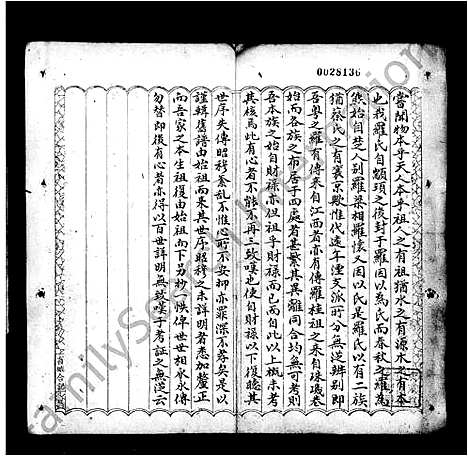 0028136
嘗聞物本乎天人本乎祖人之有祖猶水之有源木之有本
也我羅氏自顓頊之後封于羅國因以為氏而春秋之羅為
熊始自楚人别羅梁相羅懷又因以氏是羅氏以有二族
猶蔡氏之有襄京歟惟代遠年湮支派所分無從辨别即
吾粤之羅有傳来自江西者亦有傳羅桂祖之来自珠璣巷
始而各族之布居于四處者甚繁其異離同合均無可考則
吾本族之始自財祿亦但祖乎財祿而已而自此以上概未考
其後為此有心者不能不再三致嘆也使自財祿以下復聽其
世序失傳昭穆紊乱不惟心所不安抑亦罪深不募矣是以
謹輯舊譜由始祖而来其世序昭穆之未詳明者悉加釐正
而吾家之本生祖復由始祖而下另抄一帙俾世世相承永傳
勿替即後有心者亦得以百世詳明無致嘆于考証之無從云